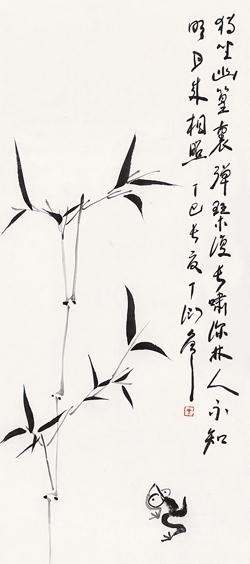 獨坐幽篁裏彈琴復長嘯深林人不知
明月來相照丁巳長夏丁衍庸